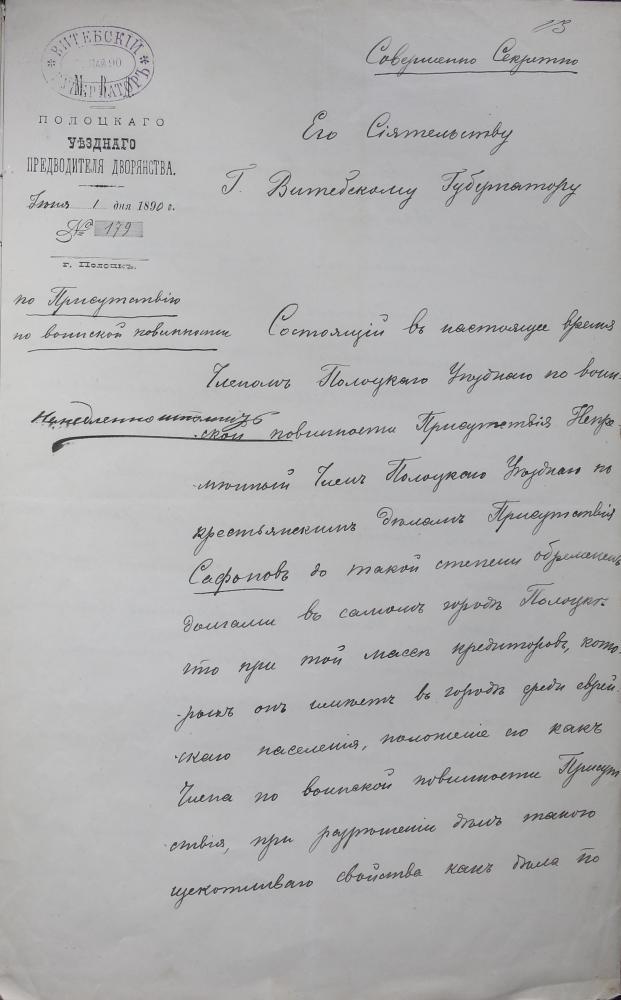 13
Совершенно Секретно
ВИТЕБСКІЙ
МАЙ 90
ГУБЕРНАТОРЪ
М. В. Д.
ПОЛОЦКАГО
УѢЗДНАГО
ПРЕДВОДИТЕЛЯ ДВОРЯНСТВА.
Іюня 1 дня 1890 г.
№ 179
г. Полоцкъ.
Его Сіятельству
Г. Витебскому Губернатору
по Присутствію
по воинской повинности
Состоящій въ настоящее время
Членомъ Полоцкаго Уѣзднаго по воин-
ской повинности Присутствія Непре-
мѣнный Членъ Полоцкаго Уѣзднаго по
крестьянскимъ дѣламъ Присутствія
Сафоновъ до такой степени обремененъ
долгами въ самомъ городѣ Полоцкѣ
что при той массѣ кредиторовъ, кото-
рыхъ онъ имѣетъ въ городѣ среди еврей-
скаго населенія, положеніе его какъ
Члена по воинской повинности Присут
ствія, при разрѣшеніи дѣлъ такого
щекотливаго свойства какъ дѣла по